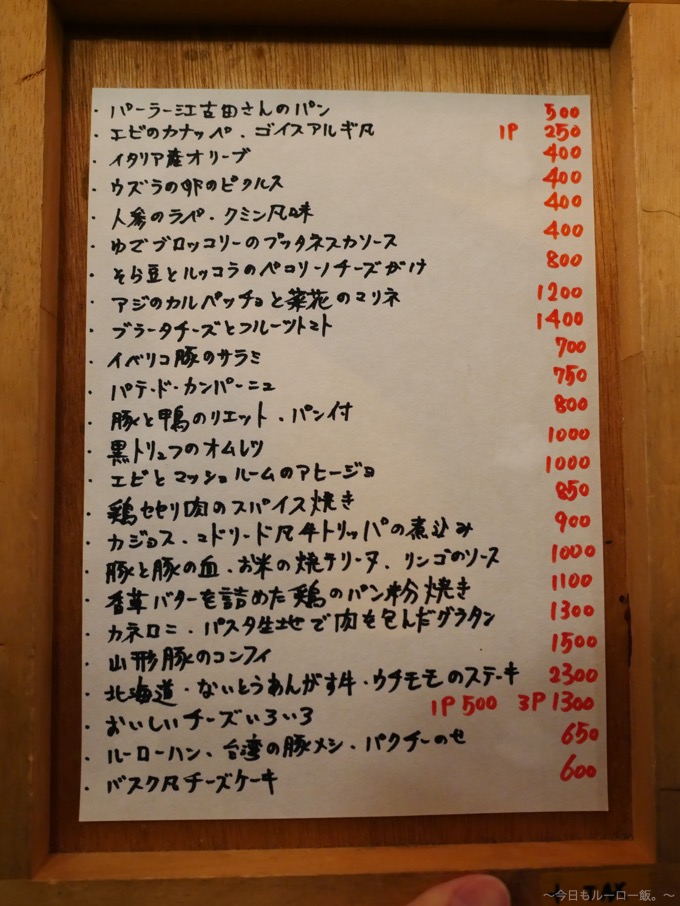 ・パーラー江古田さんのパン 500
・エビのカナッペ、ゴイスアルギ風 1P 250
・イタリア産オリーブ 400
・ウズラの卵のピクルス 400
・人参のラペ、クミン風味 400
・ゆでブロッコリーのプッタネスカソース 400
・そら豆とルッコラのペコリーノチーズがけ 800
・アジのカルパッチョと菜花のマリネ 1200
・ブラータチーズとフルーツトマト 1400
・イベリコ豚のサラミ 700
・パテ・ド・カンパーニュ 750
・豚と鴨のリエット、パン付 800
・黒トリュフのオムレツ 1000
・エビとマッシュルームのアヒージョ 1000
・鶏セセリ肉のスパイス焼き 850
・カジョス、コドリード風牛トリッパの煮込み 900
・豚と豚の血、お米の焼テリーヌ、リンゴのソース 1000
・香草バターを詰めた鶏のパン粉焼き 1100
・カネロニ・パスタ生地で肉を包んだグラタン 1300
・山形豚のコンフィ 1500
・北海道・ないとうあんがす牛・ウチモモのステーキ 2300
・おいしいチーズいろいろ 1P 500 3P 1300
・ルーローハン、台湾の豚メシ、パクチーのせ 650
・バスク風チーズケーキ 600
〜今日もルーロー飯。〜